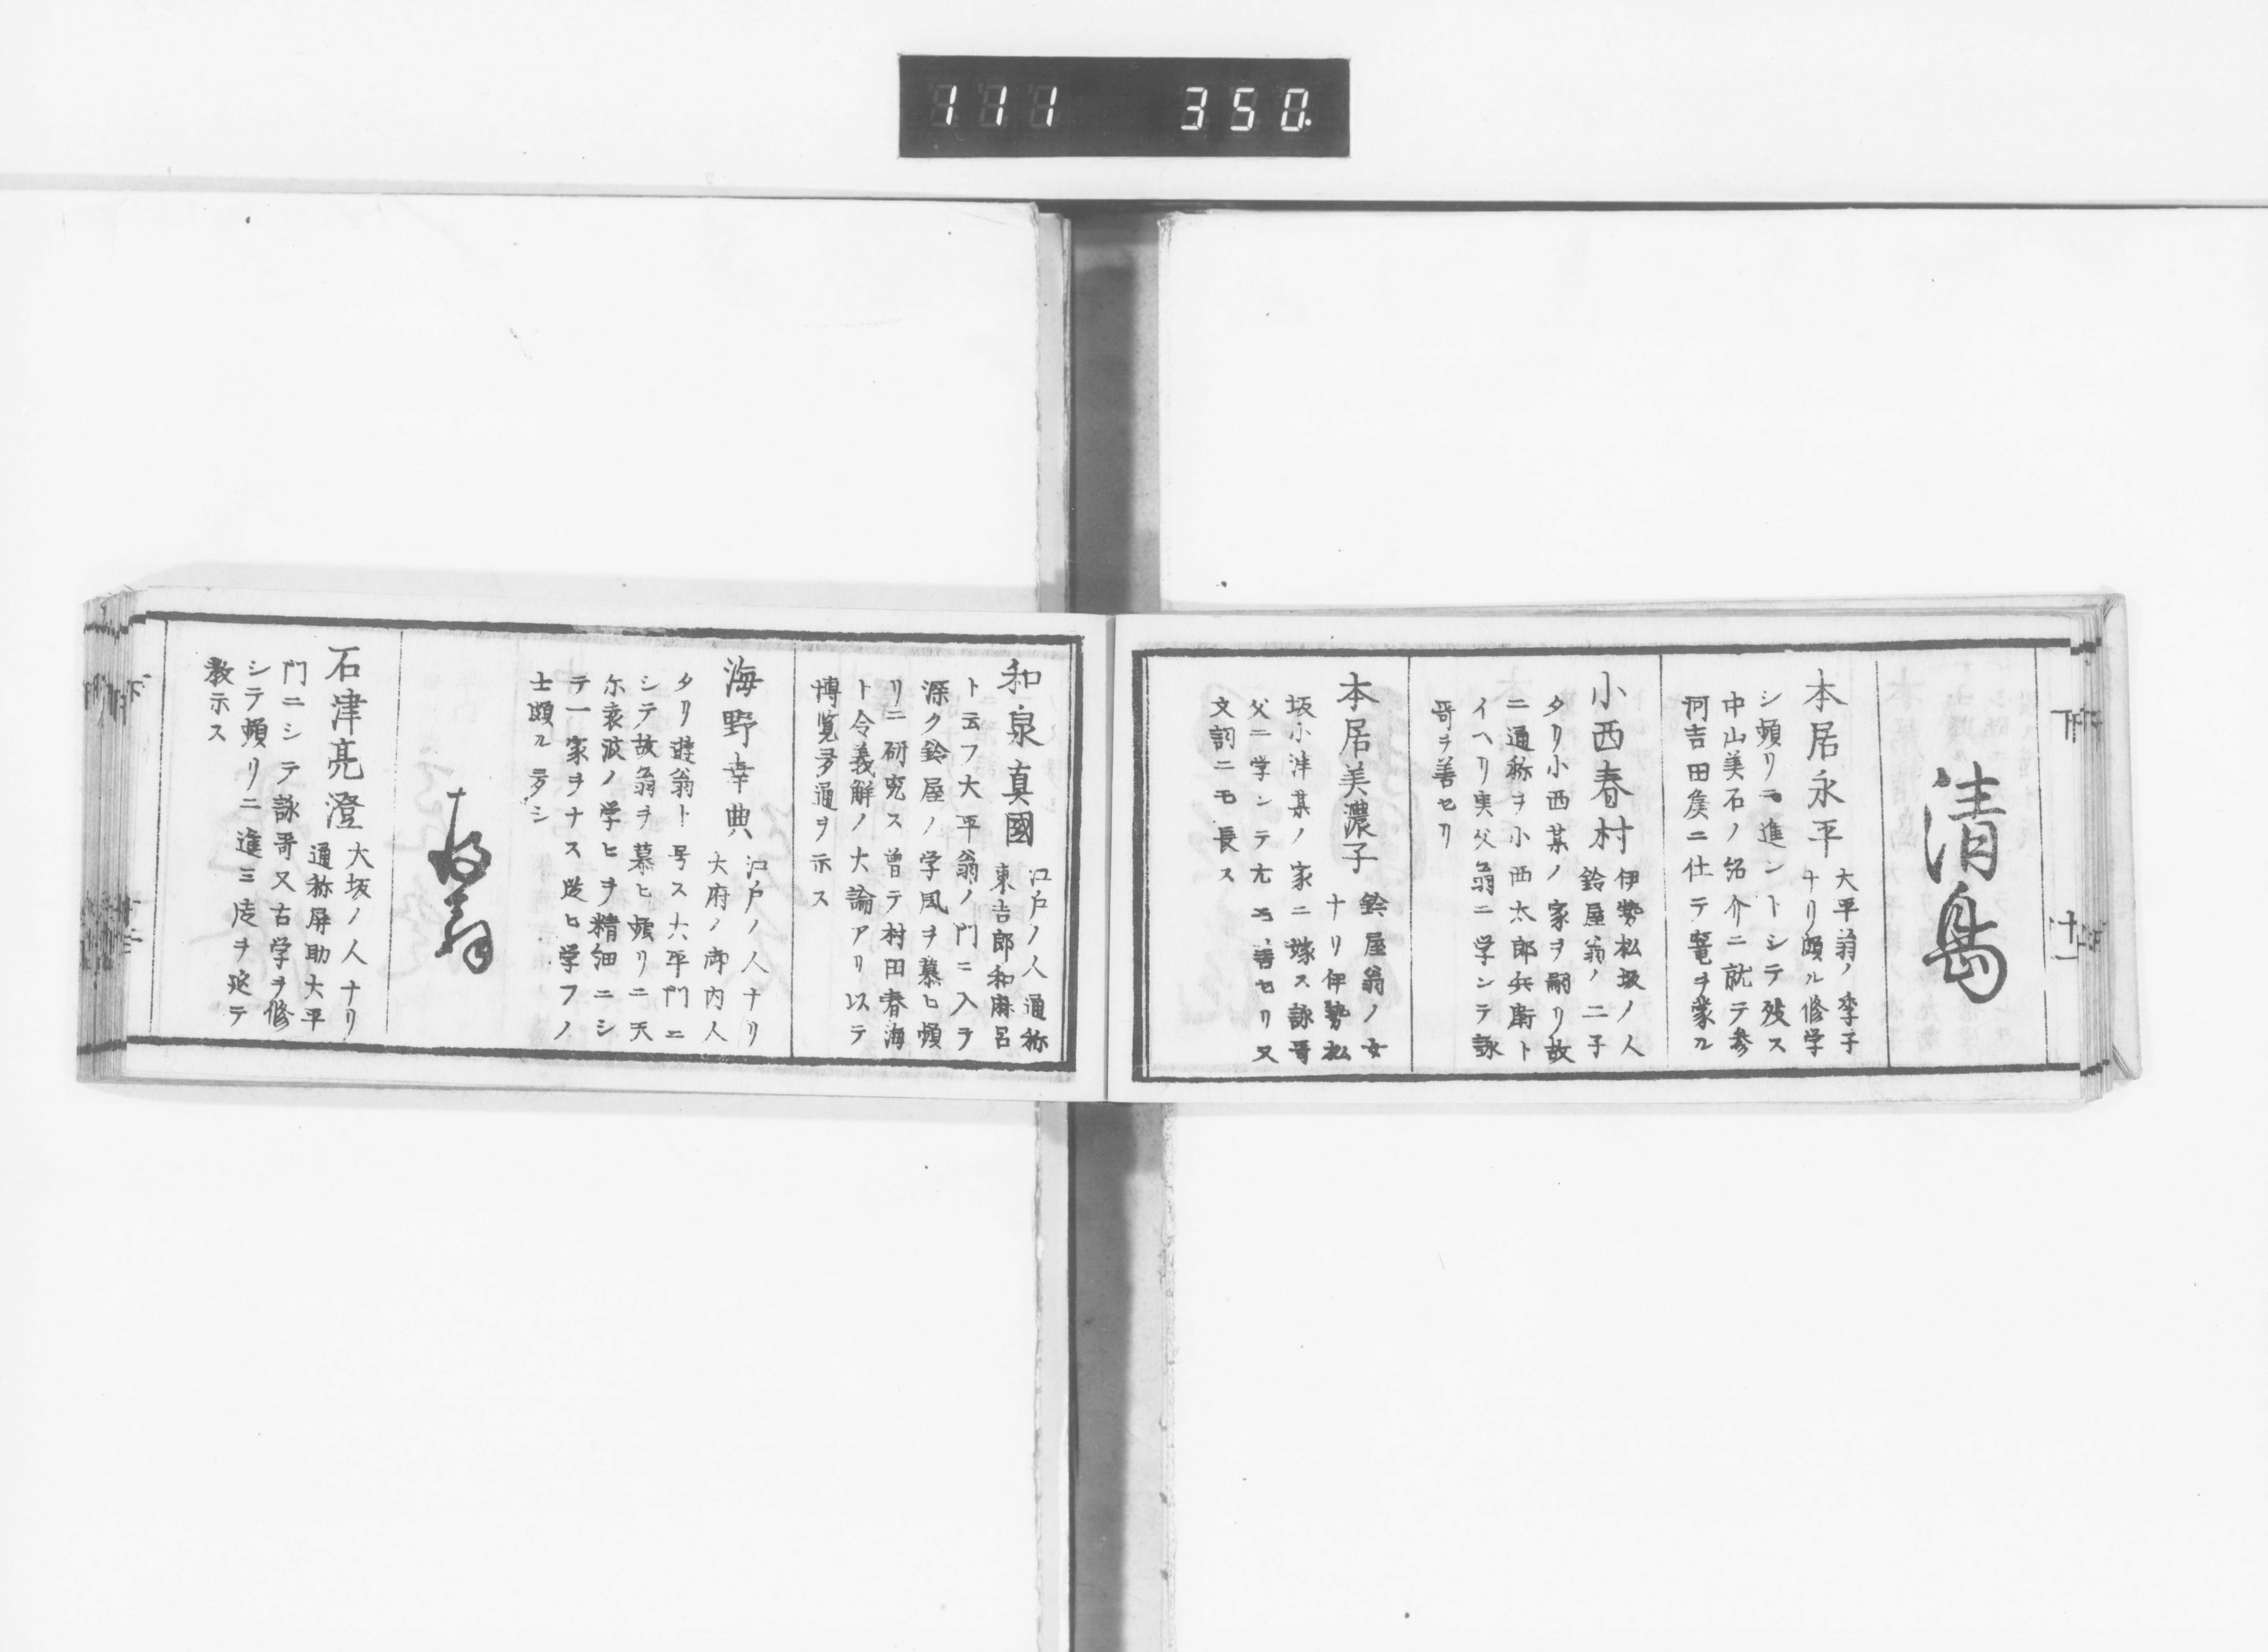 111 350.
下 十一
清島
本居永平 大平翁ノ季子
ナリ頗ル修学
シ頻リニ進ントシテ歿ス
中山美石ノ紹介ニ就テ参
河吉田矦ニ仕テ寵ヲ蒙ル
小西春村 伊勢松坂ノ人
鈴屋翁ノ二子
タリ小西某ノ家ヲ嗣リ故
ニ通称ヲ小西太郎兵衛ト
イヘリ実父翁ニ学ンテ詠
哥ヲ善セリ
本居美濃子 鈴屋翁ノ女
ナリ伊勢松
坂小津某ノ家ニ嫁ス詠哥
父ニ学ンテ尤モ善セリ又
文詞ニモ長ス
和泉真國 江戸ノ人通称
東吉郎和麻呂
ト云フ大平翁ノ門ニ入テ
深ク鈴屋ノ学風ヲ慕ヒ頻
リニ研究ス曽テ村田春海
ト令義解ノ大論アリ以テ
博覧多通ヲ示ス
海野幸典 江戸ノ人ナリ
大府ノ御内人
タリ遊翁ト号ス大平門ニ
シテ故翁ヲ慕ヒ頻リニ天
尓袁波ノ学ヒヲ精細ニシ
テ一家ヲナス従ヒ学フノ
士頗ル多シ
石津亮澄 大坂ノ人ナリ
通称屏助大平
門ニシテ詠哥又古学ヲ修
シテ頻リニ進ミ度ヲ定テ
教示ス
下 十二